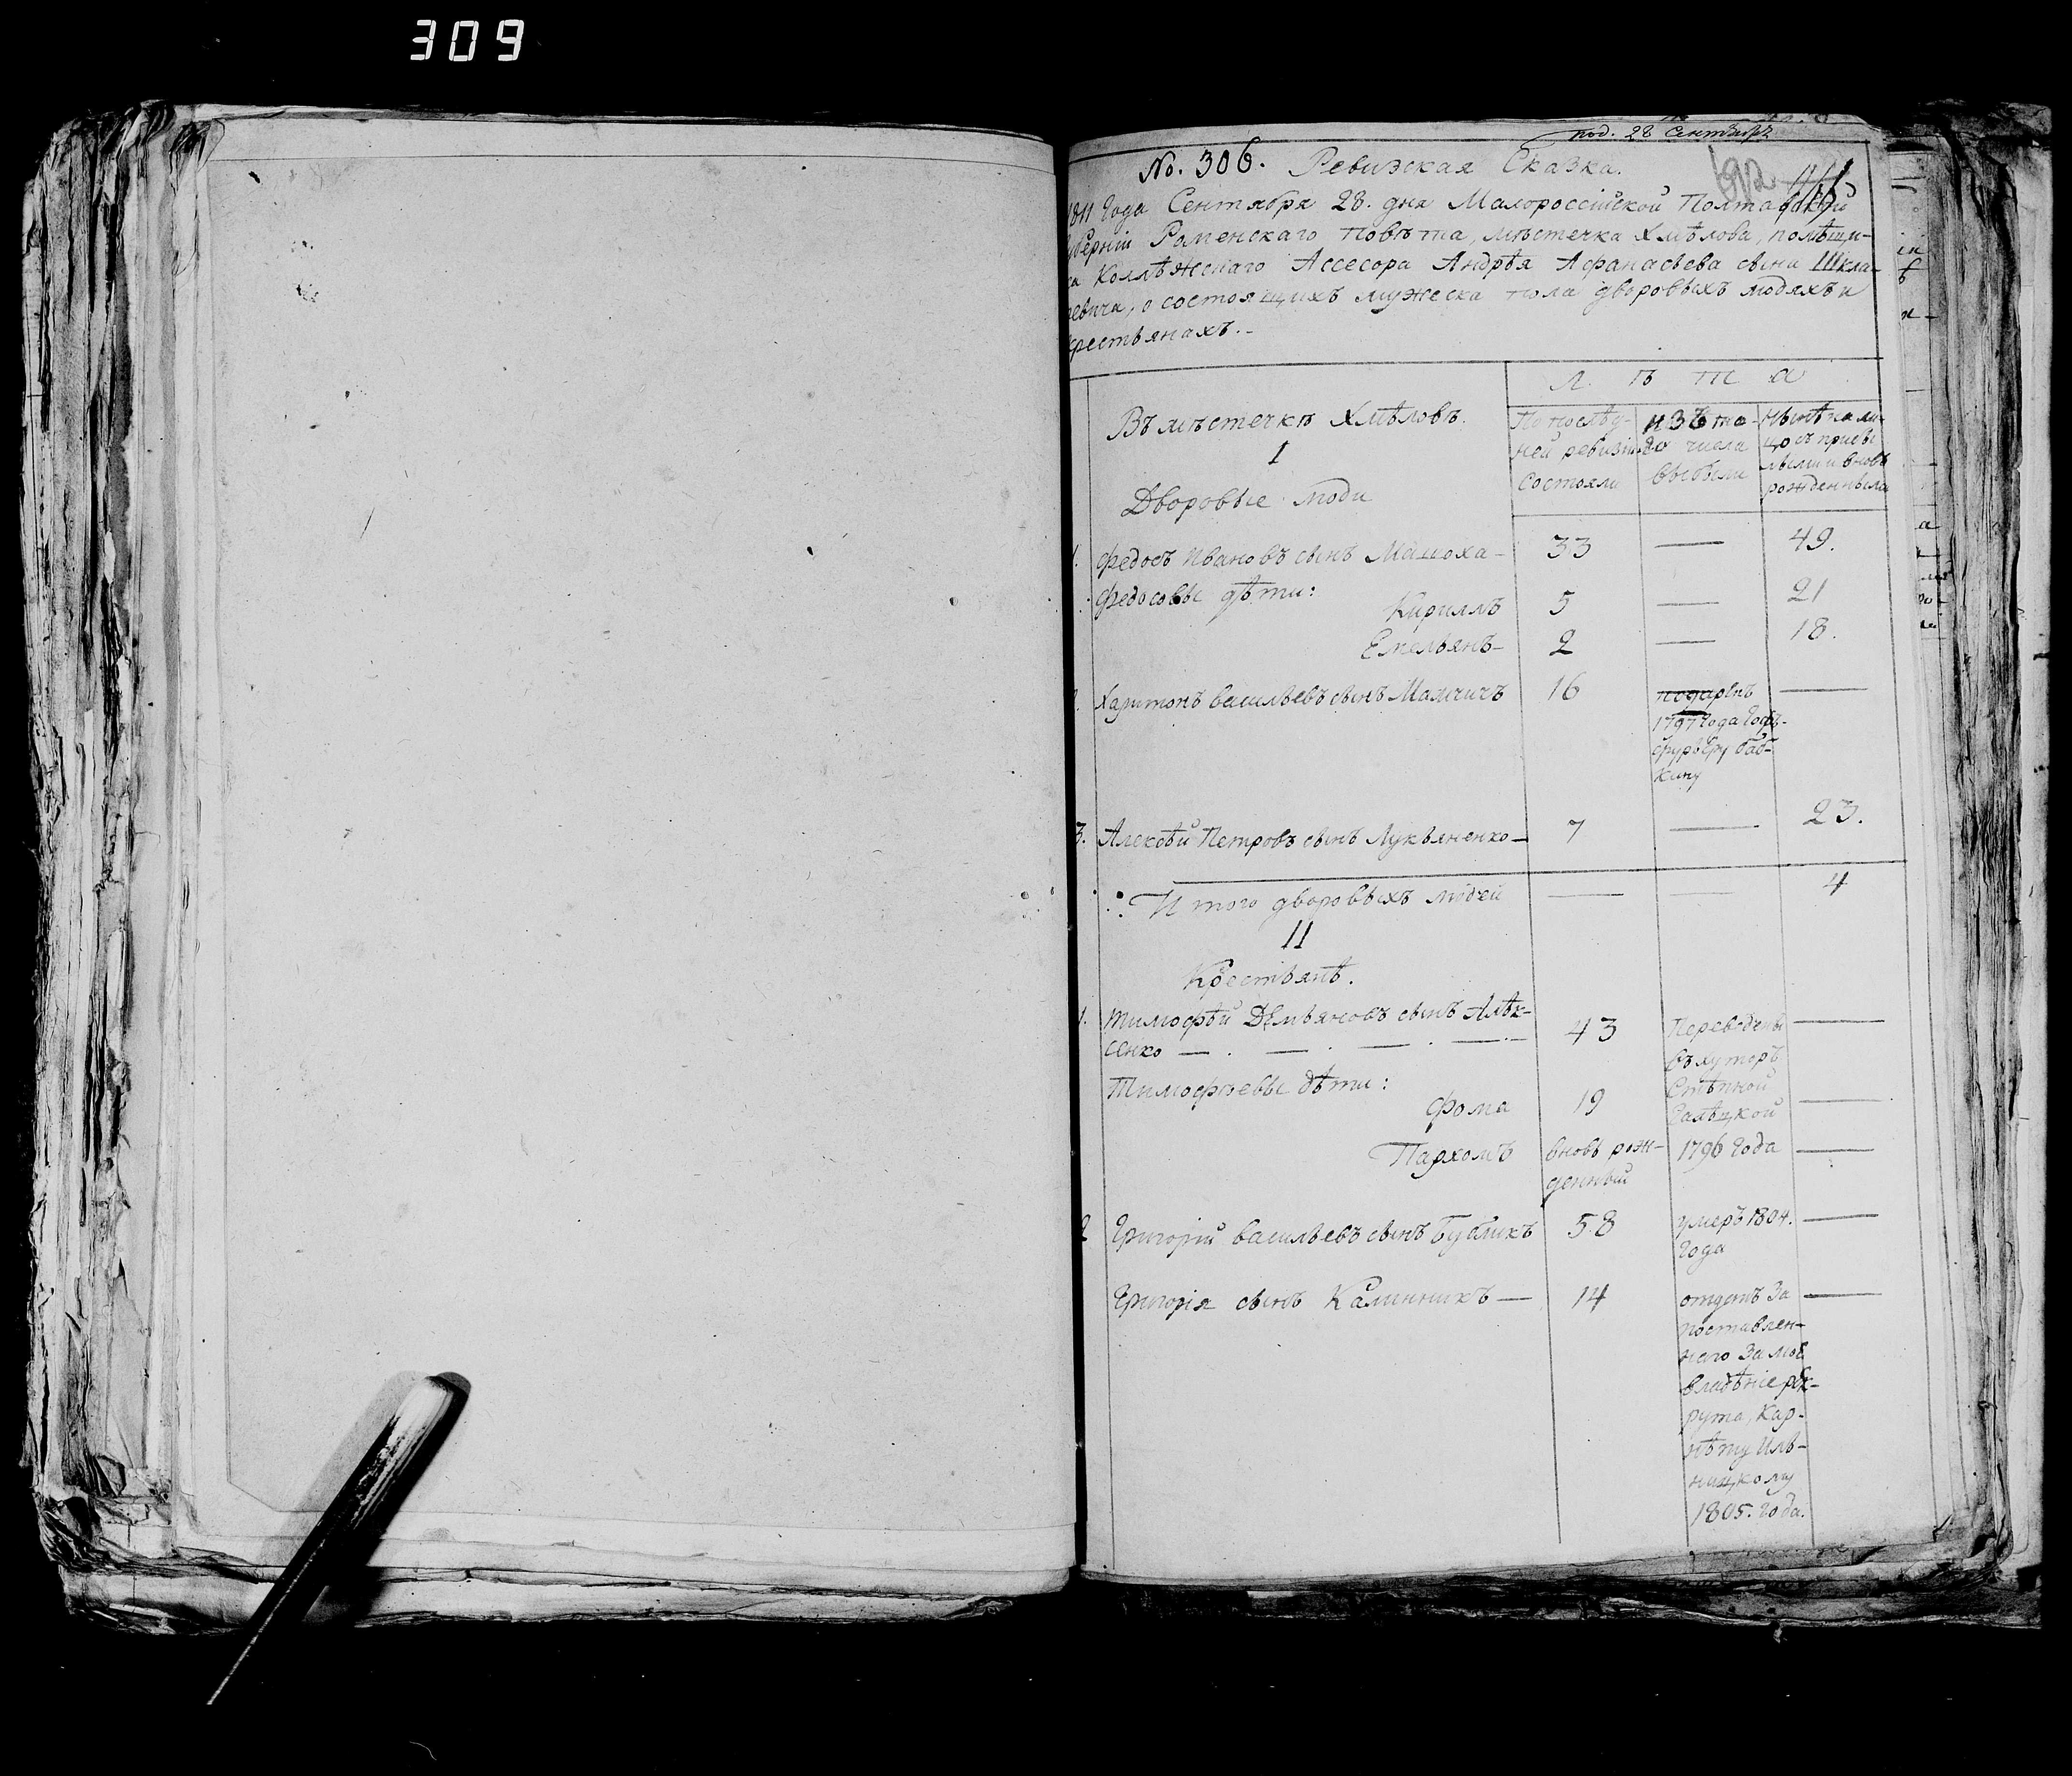 309
под. 28 Сентября
No. 306. Ревизская Сказка.
1811 Года Сентября 28. дня Малороссійской Полтавской
Губерніи Роменскаго Повѣта, мѣстечка Хмѣлова, помѣщи-
ка Коллѣжскаго Ассесора Андрѣя Афанасьева сына Шкла-
ревича, о состоящихъ мужеска пола дворовыхъ людяхъ и
крестьянахъ.-
Л ѣ т а
Въ мѣстечкѣ Хмѣловѣ.
I
Дворовые люди
По послѣд-
ней ревизіи
Состояли
изъ то-
го числа
выбыли
Нынѣ на ли-
цо съ прибы
лыми и вновь
рожденными
1. Федосъ Ивановъ сынъ Мацюха- 33 — 49.
Федосовы дѣти:
Кирилъ 5 — 21
Емельянъ- 2 — 18.
2. Харитонъ Васильевъ сынъ Мамчичъ 16 подарѣнъ —
1797 Года Гоф-
фурьеру Баб-
кину
3. Алексѣй Петровъ сынъ Лукьяненко- 7 — 23.
Итого дворовыхъ людей — — 4
II
Крестьянѣ.
1. Тимофѣй Дѣмьяновъ сынъ Алѣк-
сенко — . — . — . — . — 43 Переведены —
въ хуторъ
Тимофѣевы дѣти: Стѣпной
Фома 19 Галѣцкой —
Пархомъ вновь рож- 1796 Года —
денный
2 Григорій Васильевъ сынъ Бубликъ 58 умеръ 1804. —
Года
Григорія сынъ Калинникъ — 14 отданъ За —
поставлен-
наго За моѣ
владѣніе рѣк-
рута, Кар-
нѣту Иль-
ницкому
1805. Года.